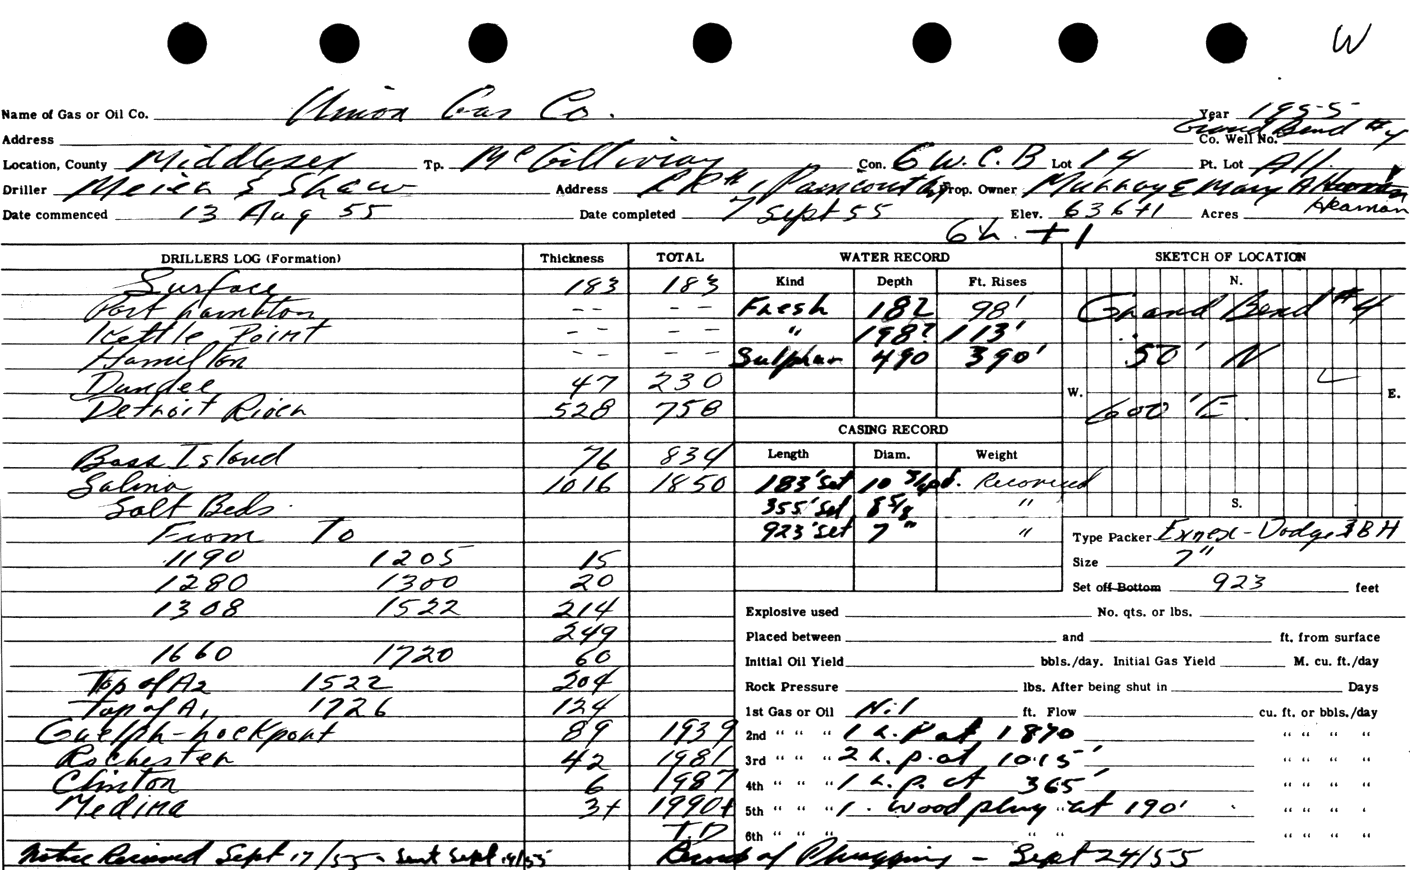 W
Name of Gas or Oil Co. Union Gas Co. Year 1955
Address Co. Well No. Grand Bend #4
Location, County Middlesex Tp. McGillivray Con. 6 W.C.B Lot 14 Pt. Lot All
Driller Meier & Shaw Address RR#1, Paincourt Prop. Owner Murray & Mary A Heaman
Date commenced 13 Aug 55 Date completed 7 Sept 55 Elev. 636+1 Acres
DRILLERS LOG (Formation) Thickness TOTAL
Surface 183 183
Port Lambton -- --
Kettle Point -- --
Hamilton -- --
Dundee 47 230
Detroit River 528 758
Bass Island 76 834
Salina 1016 1850
Salt Beds
From To
1190 1205 15
1280 1300 20
1308 1522 214
249
1660 1720 60
Top of A2 1522 204
Top of A1 1726 124
Guelph-Lockport 89 1939
Rochester 42 1981
Clinton 6 1987
Medina 3+ 1990+
T.D
Notice Received Sept 17/55 - Sent Sept 19/55
WATER RECORD
Kind Depth Ft. Rises
Fresh 182 98'
" 198? 113'
Sulphur 490 390'
CASING RECORD
Length Diam. Weight
183' Set 10 3/4 Recovered
355' Set 8 5/8 "
923' Set 7" "
SKETCH OF LOCATION
N.
Grand Bend #4
50' N
W. E.
600' E.
S.
Type Packer Dodge 3BH
Size 7"
Set off Bottom 923 feet
Explosive used No. qts. or lbs.
Placed between and ft. from surface
Initial Oil Yield bbls./day. Initial Gas Yield M. cu. ft./day
Rock Pressure lbs. After being shut in Days
1st Gas or Oil Nil ft. Flow cu. ft. or bbls./day
2nd " " " 1 L.P at 1870 " " " "
3rd " " " 2 L.P. at 1015' " " " "
4th " " " 1 L.P. at 365' " " " "
5th " " " 1. Wood plug at 190' " " "
6th " " " " " " " " "
Record of Plugging - Sept 24/55